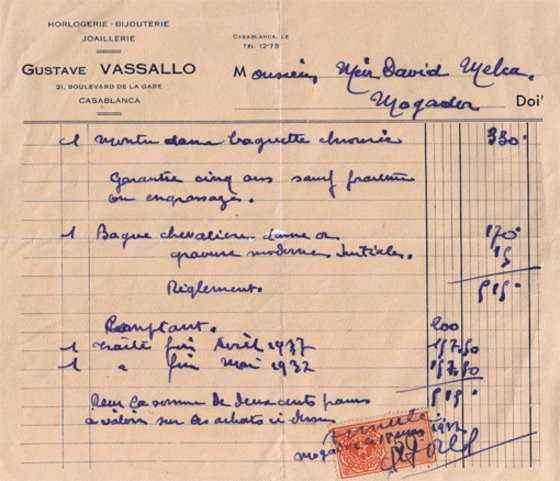 HORLOGERIE - BIJOUTERIE
JOAILLERIE
GUSTAVE VASSALLO
21, BOULEVARD DE LA GARE
CASABLANCA
CASABLANCA, LE
TÉL. 12-73
Monsieur Meir David Melca.
Mogador Doit
1 montre dame baguette chromée 330.
Garantie cinq ans sauf fracture
ou engrassage.
1 Bague chevalière dame or 170.
gravure moderne Initiales. 15
Règlement. 515.
Comptant. 200
1 traite fin Avril 1937 157.50
1 " fin Mai 1937 157.50
Reçu la somme de deux cents francs 515.
à valoir sur les achats ci dessus